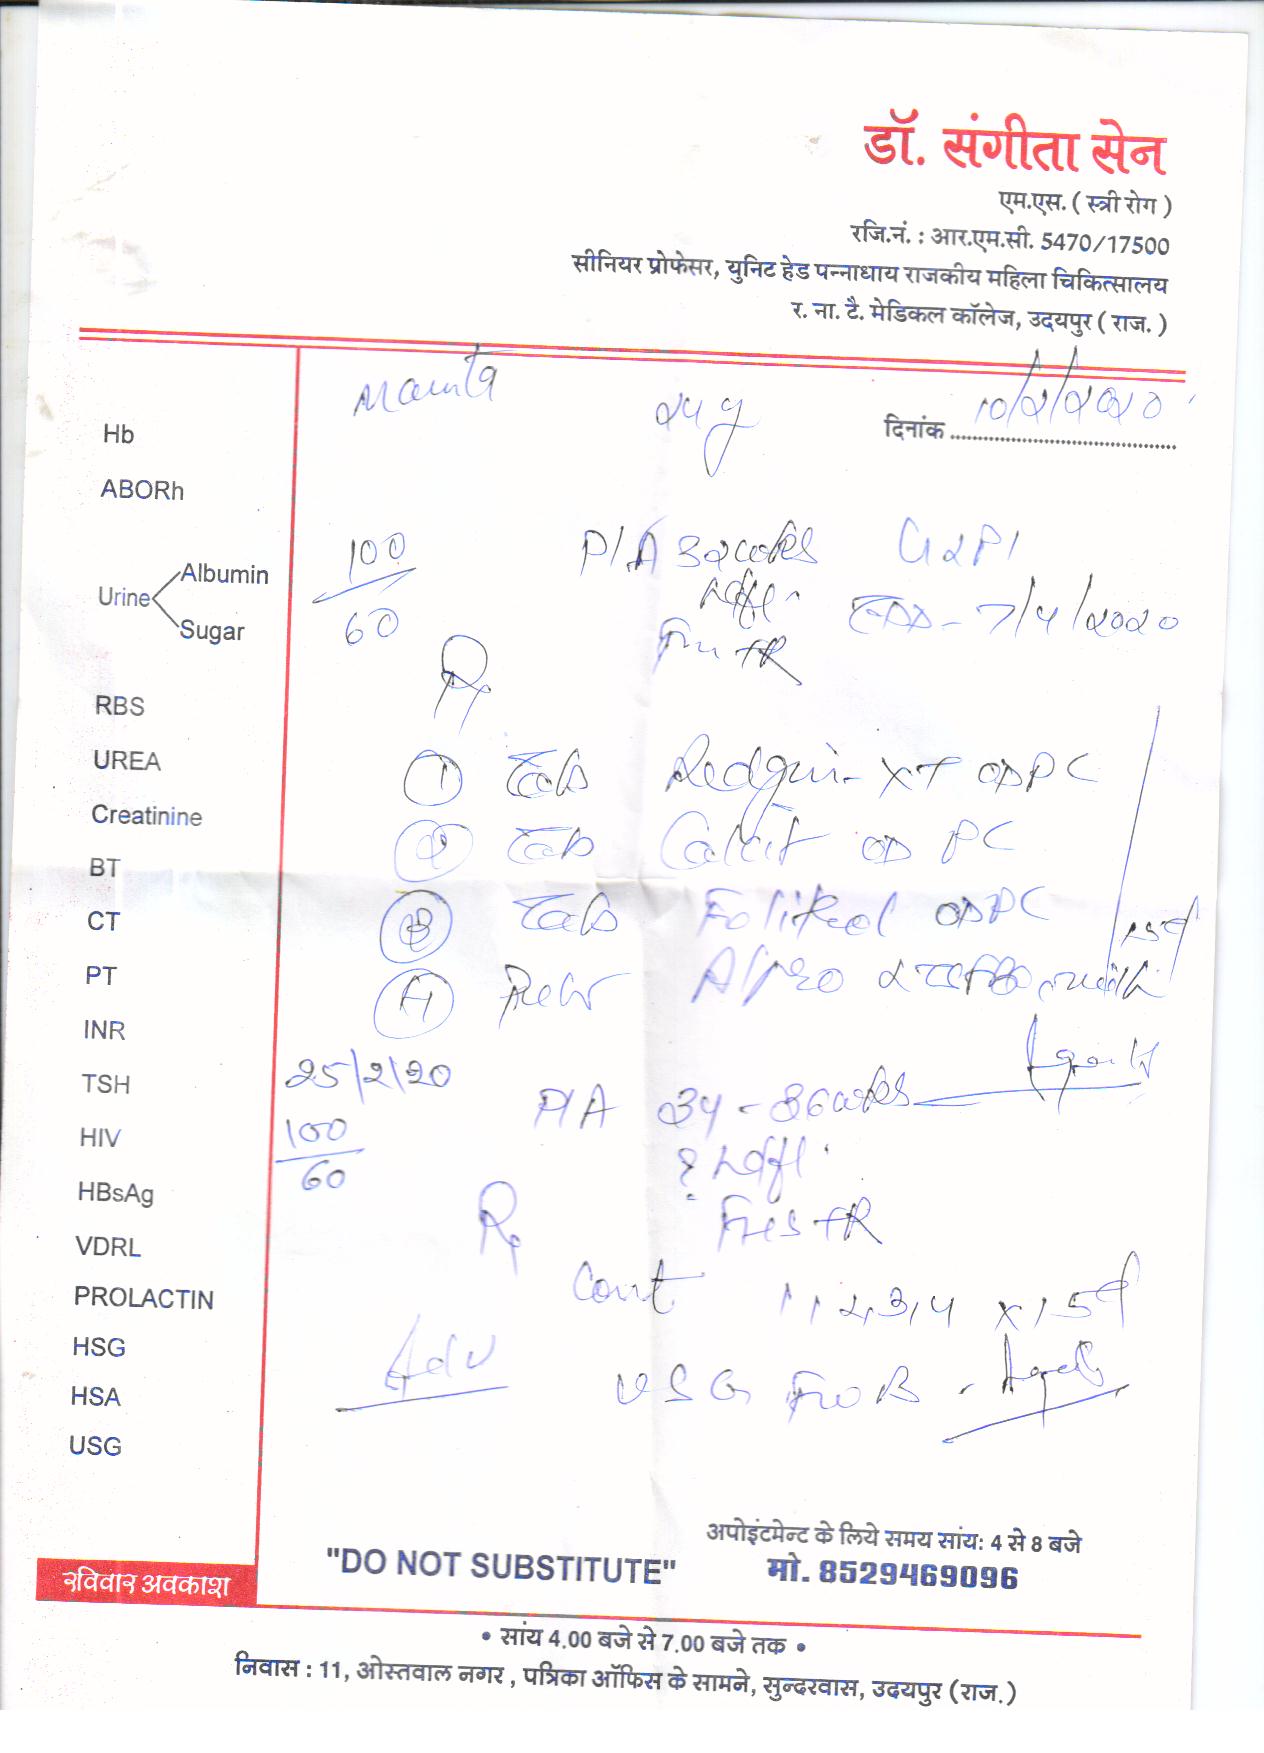 डॉ. संगीता सेन
एम.एस. ( स्त्री रोग )
रजि.नं. : आर.एम.सी. 5470/17500
सीनियर प्रोफेसर, युनिट हेड पन्नाधाय राजकीय महिला चिकित्सालय
र. ना. टै. मेडिकल कॉलेज, उदयपुर ( राज. )
Mamta 24 y दिनांक 10/2/2020
Hb
ABORh
Urine Albumin
Sugar
100/60 P/A 32 wks G2P1
EDD - 7/4/2020
RBS
UREA
Creatinine
BT
CT
PT
INR
TSH
HIV
HBsAg
VDRL
PROLACTIN
HSG
HSA
USG
Rx
1 Tab XT OD PC
2 Tab OD PC
3 Tab OD PC
4 15 d
25/2/20
100/60 P/A 34 - 36 wks
Rx
Cont 1, 2, 3, 4 x 15 d
Adv USG
"DO NOT SUBSTITUTE"
अपोइंटमेन्ट के लिये समय सांय: 4 से 8 बजे
मो. 8529469096
रविवार अवकाश
• सांय 4.00 बजे से 7.00 बजे तक •
निवास : 11, ओस्तवाल नगर , पत्रिका ऑफिस के सामने, सुन्दरवास, उदयपुर (राज.)